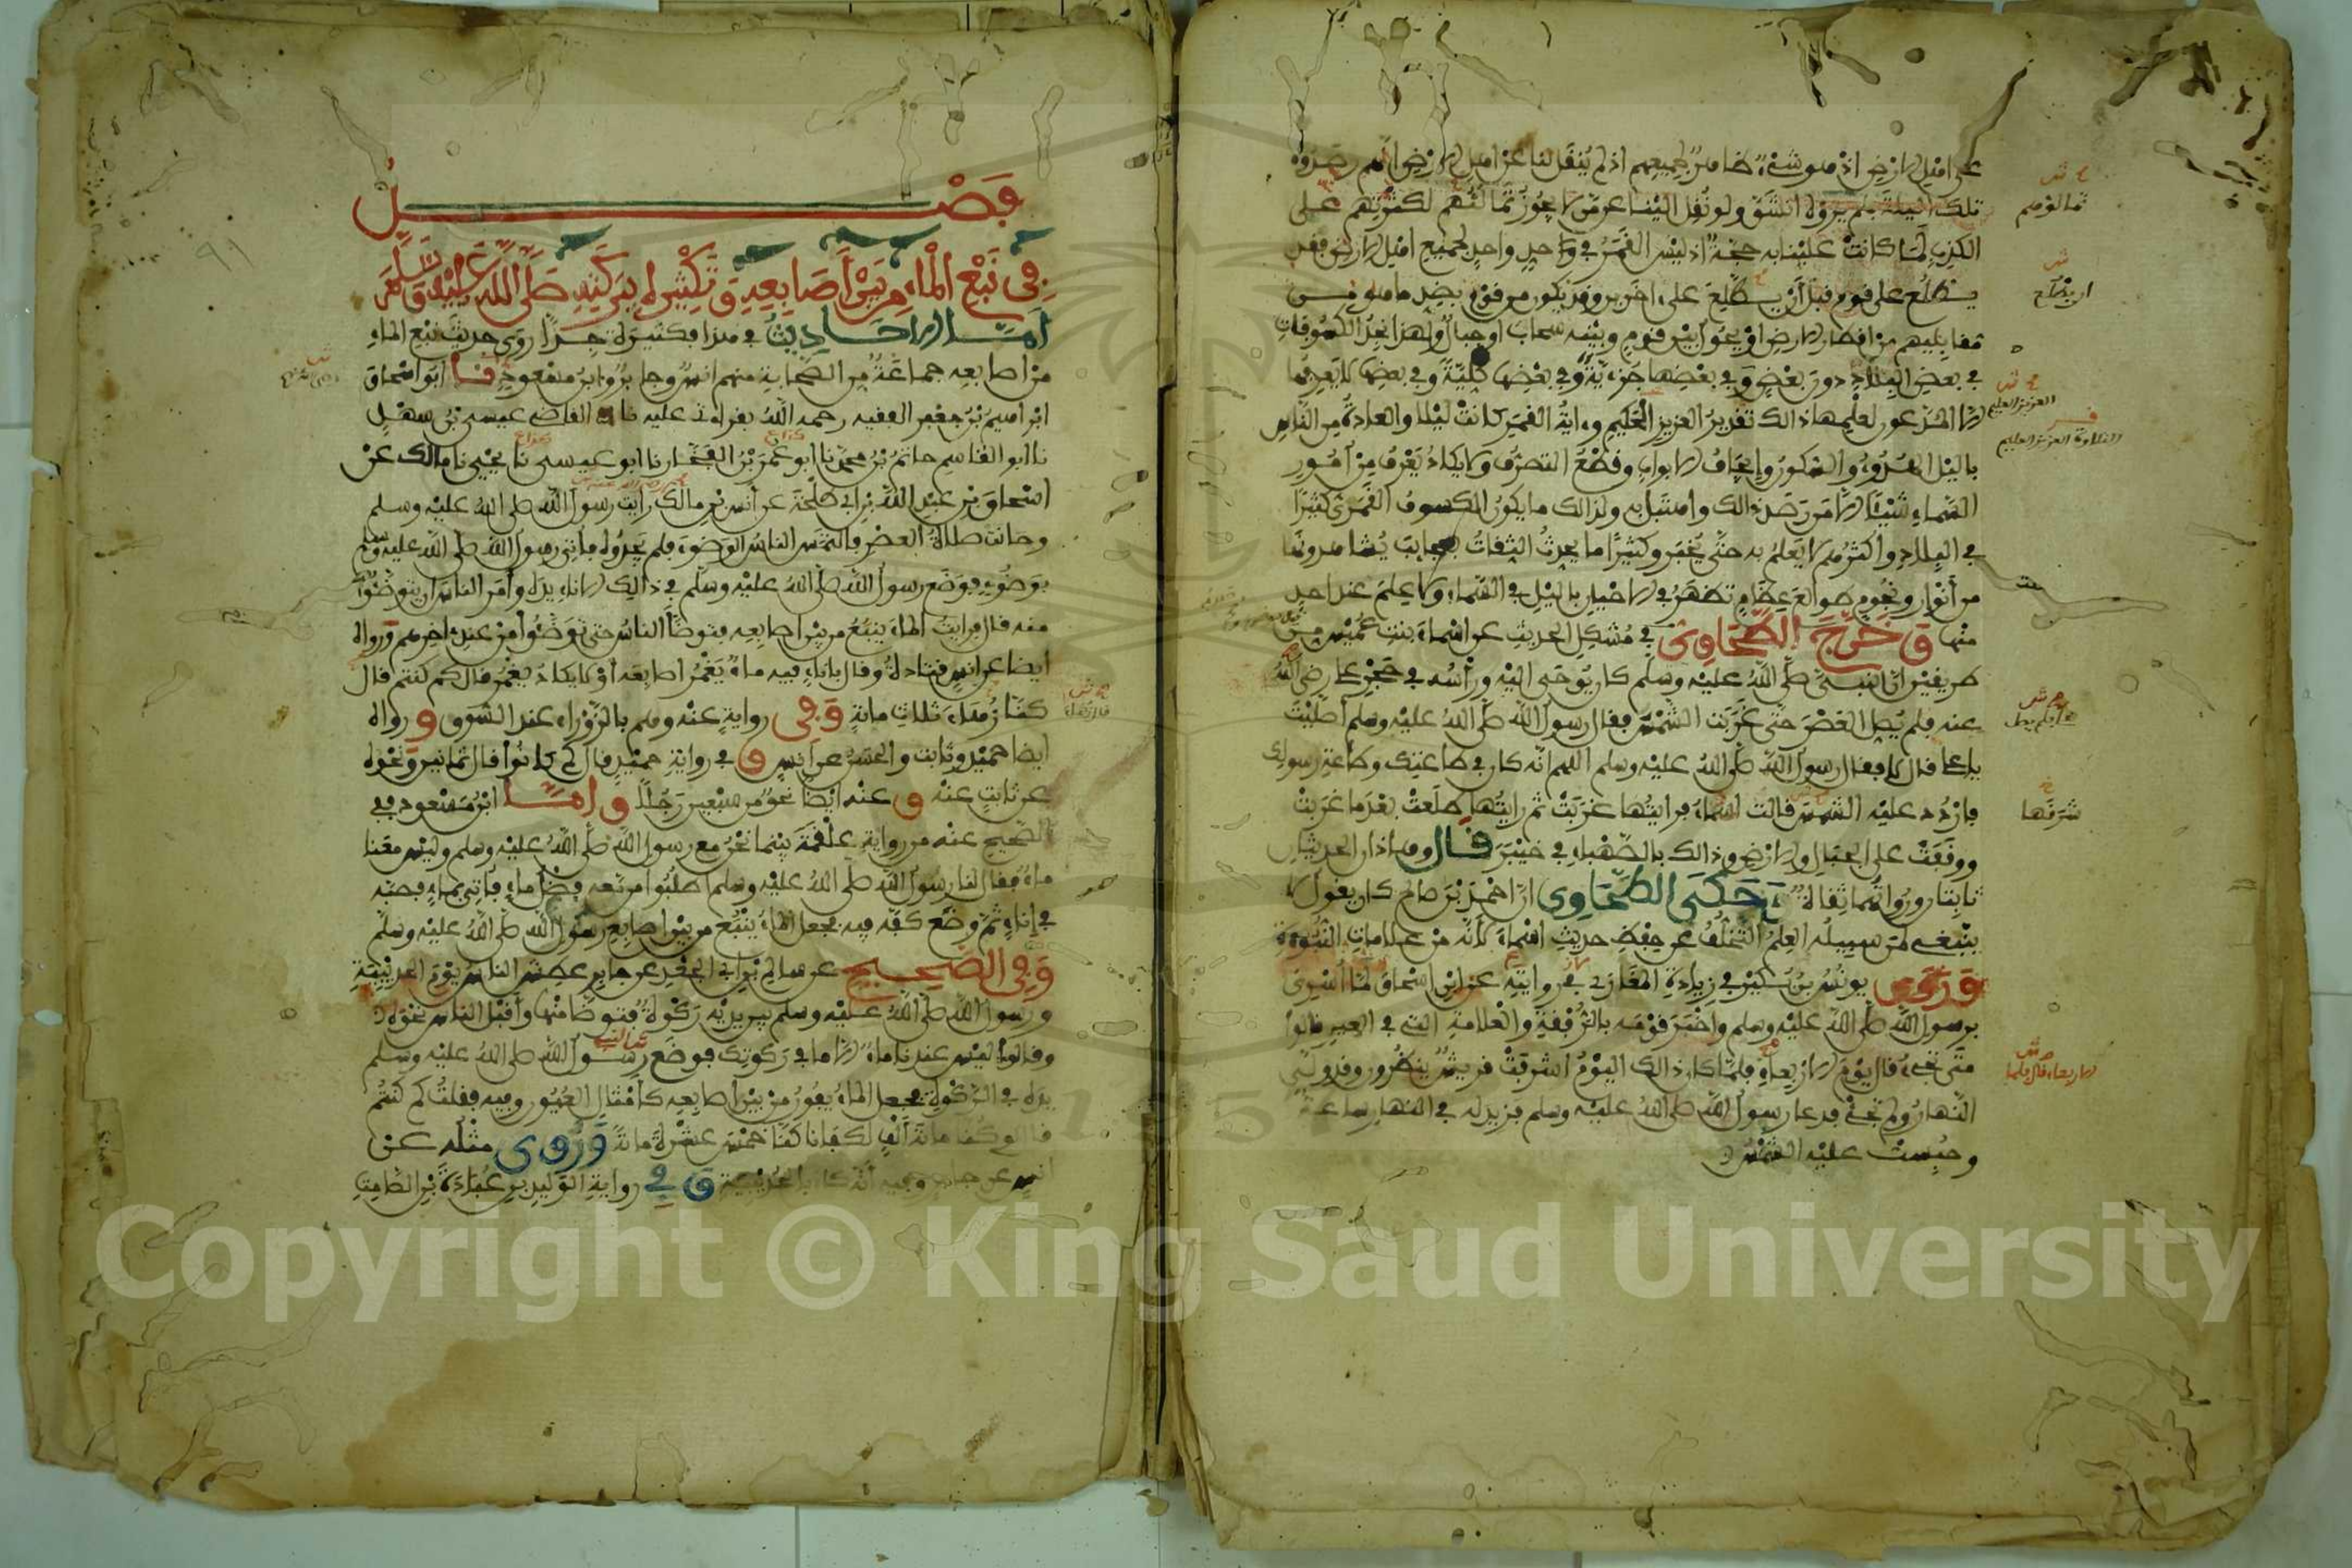 على اهل الارض اذ هو شيء ظاهر لجميعهم اذ لم يُنقل لنا عن اهل الارض انهم رصدوه
تلك الليلة فلم يروه انشق ولو نُقل الينا عمن لا يجوز تمالُئهم لكثرتهم على
الكذب لما كانت علينا به حجة اذ ليس القمر في حد واحد لجميع اهل الارض فقد
يطلع على قوم قبل ان يطلع على اخرين وقد يكون من قوم بضد ما هو من
مقابليهم من اقطار الارض او يحول بين قوم وبينه سحاب او جبال ولهذا نجد الكسوفات
في بعض البلاد دون بعض وفي بعضها جزئية وفي بعضها كلية وفي بعضها لا يعرفها
الا المدعون لعلمها ذالك تقدير العزيز الحكيم وءاية القمر كانت ليلا والعادة من الناس
باليل الهدوء والسكون وايجاف الابواب وقطع التصرف ولا يكاد يعرف من امور
السماء شيئا الا من رصد ذالك واهتبل به ولذالك ما يكون الكسوف القمري كثيرا
في البلاد واكثرهم لا يعلم به حتى يُخبر وكثيرا ما يحدث الثقات بعجائب يشاهدونها
من أنوار ونجوم طوالع عظام تظهر في الاحيان باليل في السماء ولا علم عند احد
منها وخرج الطحاوي في مشكل الحديث عن اسماء بنت عميس من
طريقين ان النبي صلى الله عليه وسلم كان يوحى اليه ورأسه في حجر علي رضي الله
عنه فلم يصل العصر حتى غربت الشمس فقال رسول الله صلى الله عليه وسلم أصليت
يا علي قال لا فقال رسول الله صلى الله عليه وسلم اللهم انه كان في طاعتك وطاعة رسولك
فاردد عليه الشمس قالت اسماء فرايتها غربت ثم رايتها طلعت بعد ما غربت
ووقفت على الجبال والارض وذالك بالصهباء في خيبر قال وهذان الحديثان
ثابتان ورواتهما ثقات وحكى الطحاوي ان احمد بن صالح كان يقول لا
ينبغي لمن سبيله العلم التخلف عن حفظ حديث اسماء لانه من علامات النبوءة
وروى يونس بن بكير في زيادة المغازي في روايته عن ابن اسحاق لما أسري
برسول الله صلى الله عليه وسلم واخبر قومه بالرفقة والعلامة التي في العير قالوا
متى تجيء قال يوم الاربعاء فلما كان ذالك اليوم اشرفت قريش ينظرون وقد ولى
النهار ولم تجئ فدعا رسول الله صلى الله عليه وسلم فزيد له في النهار ساعة
وحُبست عليه الشمس
تمالؤهم
ان يطلع
العزيز العليم
التلاوة العزيز العليم
شرقها
الاربعاء قال فلما
فصل
في نبع الماء من بين أصابعه وتكثيره ببركته صلى الله عليه وسلم
أما الاحاديث في هذا فكثيرة جدا روى حديث نبع الماء
من اصابعه جماعة من الصحابة منهم انس وجابر وابن مسعود نا ابو اسحاق
ابراهيم بن جعفر الفقيه رحمه الله بقراءتي عليه نا القاضي عيسى بن سهل
نا ابو القاسم حاتم بن محمد نا ابو عمر بن الفخار نا ابو عيسى نا يحيى نا مالك عن
اسحاق بن عبد الله بن ابي طلحة عن أنس بن مالك رايت رسول الله صلى الله عليه وسلم
وحانت صلاة العصر فالتمس الناس الوضوء فلم يجدوه فأتي رسول الله صلى الله عليه وسلم
بوضوء فوضع رسول الله صلى الله عليه وسلم في ذالك الاناء يده وأمر الناس ان يتوضئوا
منه قال فرايت الماء ينبع من بين اصابعه فتوضأ الناس حتى توضئوا من عند اخرهم ورواه
ايضا عن انس قتادة وقال باناء فيه ماء يغمر اصابعه أو لا يكاد يغمر قال كم كنتم قال
كنا زهاء ثلاث مائة وفي رواية عنه وهم بالزوراء عند السوق ورواه
ايضا حميد وثابت والحسن عن انس وفي رواية حميد قال كم كانوا قال ثمانين ونحوه
عن ثابت عنه وعنه ايضا نحو من سبعين رجلا وأما ابن مسعود ففي
الصحيح عنه من رواية علقمة بينما نحن مع رسول الله صلى الله عليه وسلم وليس معنا
ماء فقال لنا رسول الله صلى الله عليه وسلم اطلبوا من معه فضل ماء فأتي بماء فصبه
في إناء ثم وضع كفه فيه فجعل الماء ينبع من بين اصابع رسول الله صلى الله عليه وسلم
وفي الصحيح عن سالم بن ابي الجعد عن جابر عطش الناس يوم الحديبية
ورسول الله صلى الله عليه وسلم بين يديه ركوة فتوضأ منها وأقبل الناس نحوه
وقالوا ليس عندنا ماء الا ما في ركوتك فوضع رسول الله صلى الله عليه وسلم
يده في الركوة فجعل الماء يفور من بين أصابعه كأمثال العيون وفيه فقلت كم كنتم
قال لو كنا مائة ألف لكفانا كنا خمس عشرة مائة وروي مثله عن
انس عن جابر وفيه أنه كان بالحديبية وفي رواية الوليد بن عبادة بن الصامت
٩١
Copyright © King Saud University